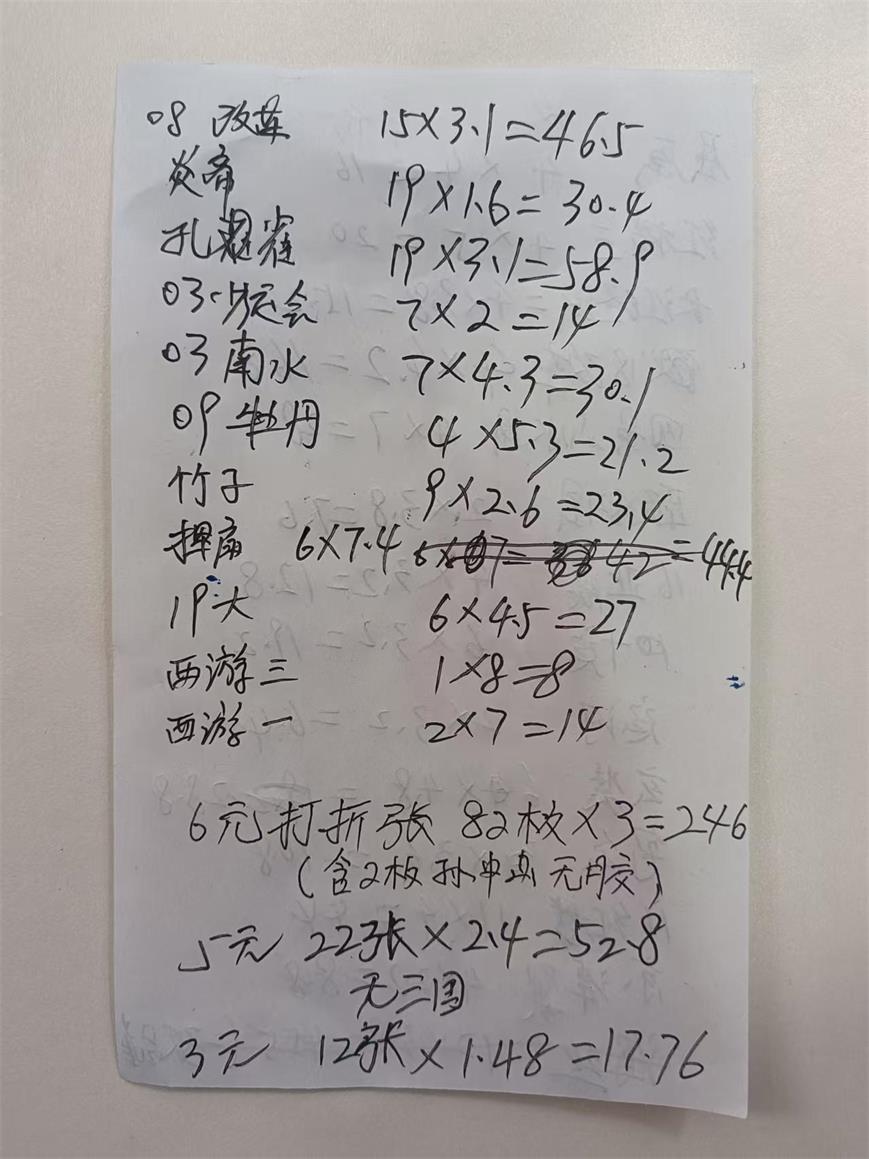 08 改革 15×3.1=46.5
炎帝 19×1.6=30.4
孔雀 19×3.1=58.9
03 运会 7×2=14
03 南水 7×4.3=30.1
09 牡丹 4×5.3=21.2
竹子 9×2.6=23.4
扇 6×7.4 =44.4
19大 6×4.5=27
西游三 1×8=8
西游一 2×7=14
6元打折张 82枚×3=246
(含2枚孙中山无胶)
5元 22张×2.4=52.8
无三国
3元 12张×1.48=17.76